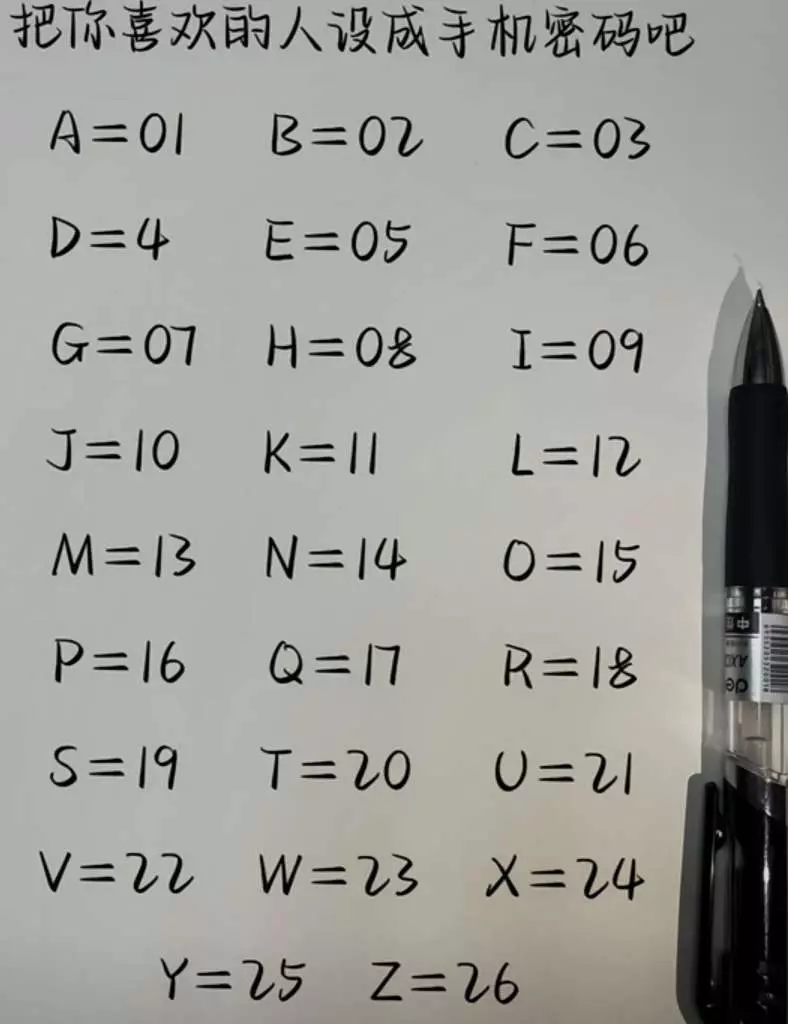 把你喜欢的人设成手机密码吧
A=01 B=02 C=03
D=4 E=05 F=06
G=07 H=08 I=09
J=10 K=11 L=12
M=13 N=14 O=15
P=16 Q=17 R=18
S=19 T=20 U=21
V=22 W=23 X=24
Y=25 Z=26